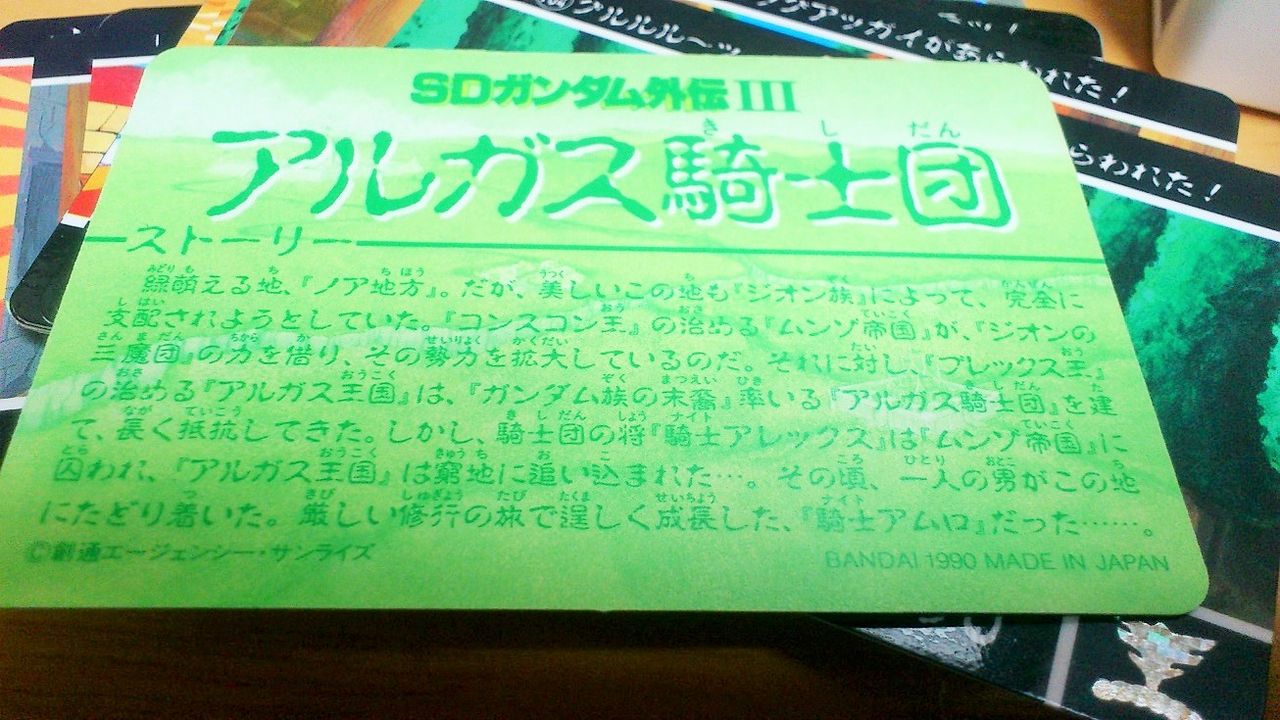 グルルル〜ッ
アッガイがあらわれた!
らわれた!
SDガンダム外伝III
アルガス騎士団
ストーリー
緑萌える地、『ノア地方』。だが、美しいこの地も『ジオン族』によって、完全に
支配されようとしていた。『コンスコン王』の治める『ムンゾ帝国』が、『ジオンの
三魔団』の力を借り、その勢力を拡大しているのだ。それに対し、『ブレックス王』
の治める『アルガス王国』は、『ガンダム族の末裔』率いる『アルガス騎士団』を建
て、長く抵抗してきた。しかし、騎士団の将『騎士アレックス』は『ムンゾ帝国』に
囚われ、『アルガス王国』は窮地に追い込まれた…。その頃、一人の男がこの地
にたどり着いた。厳しい修行の旅で逞しく成長した、『騎士アムロ』だった……。
©創通エージェンシー・サンライズ
BANDAI 1990 MADE IN JAPAN